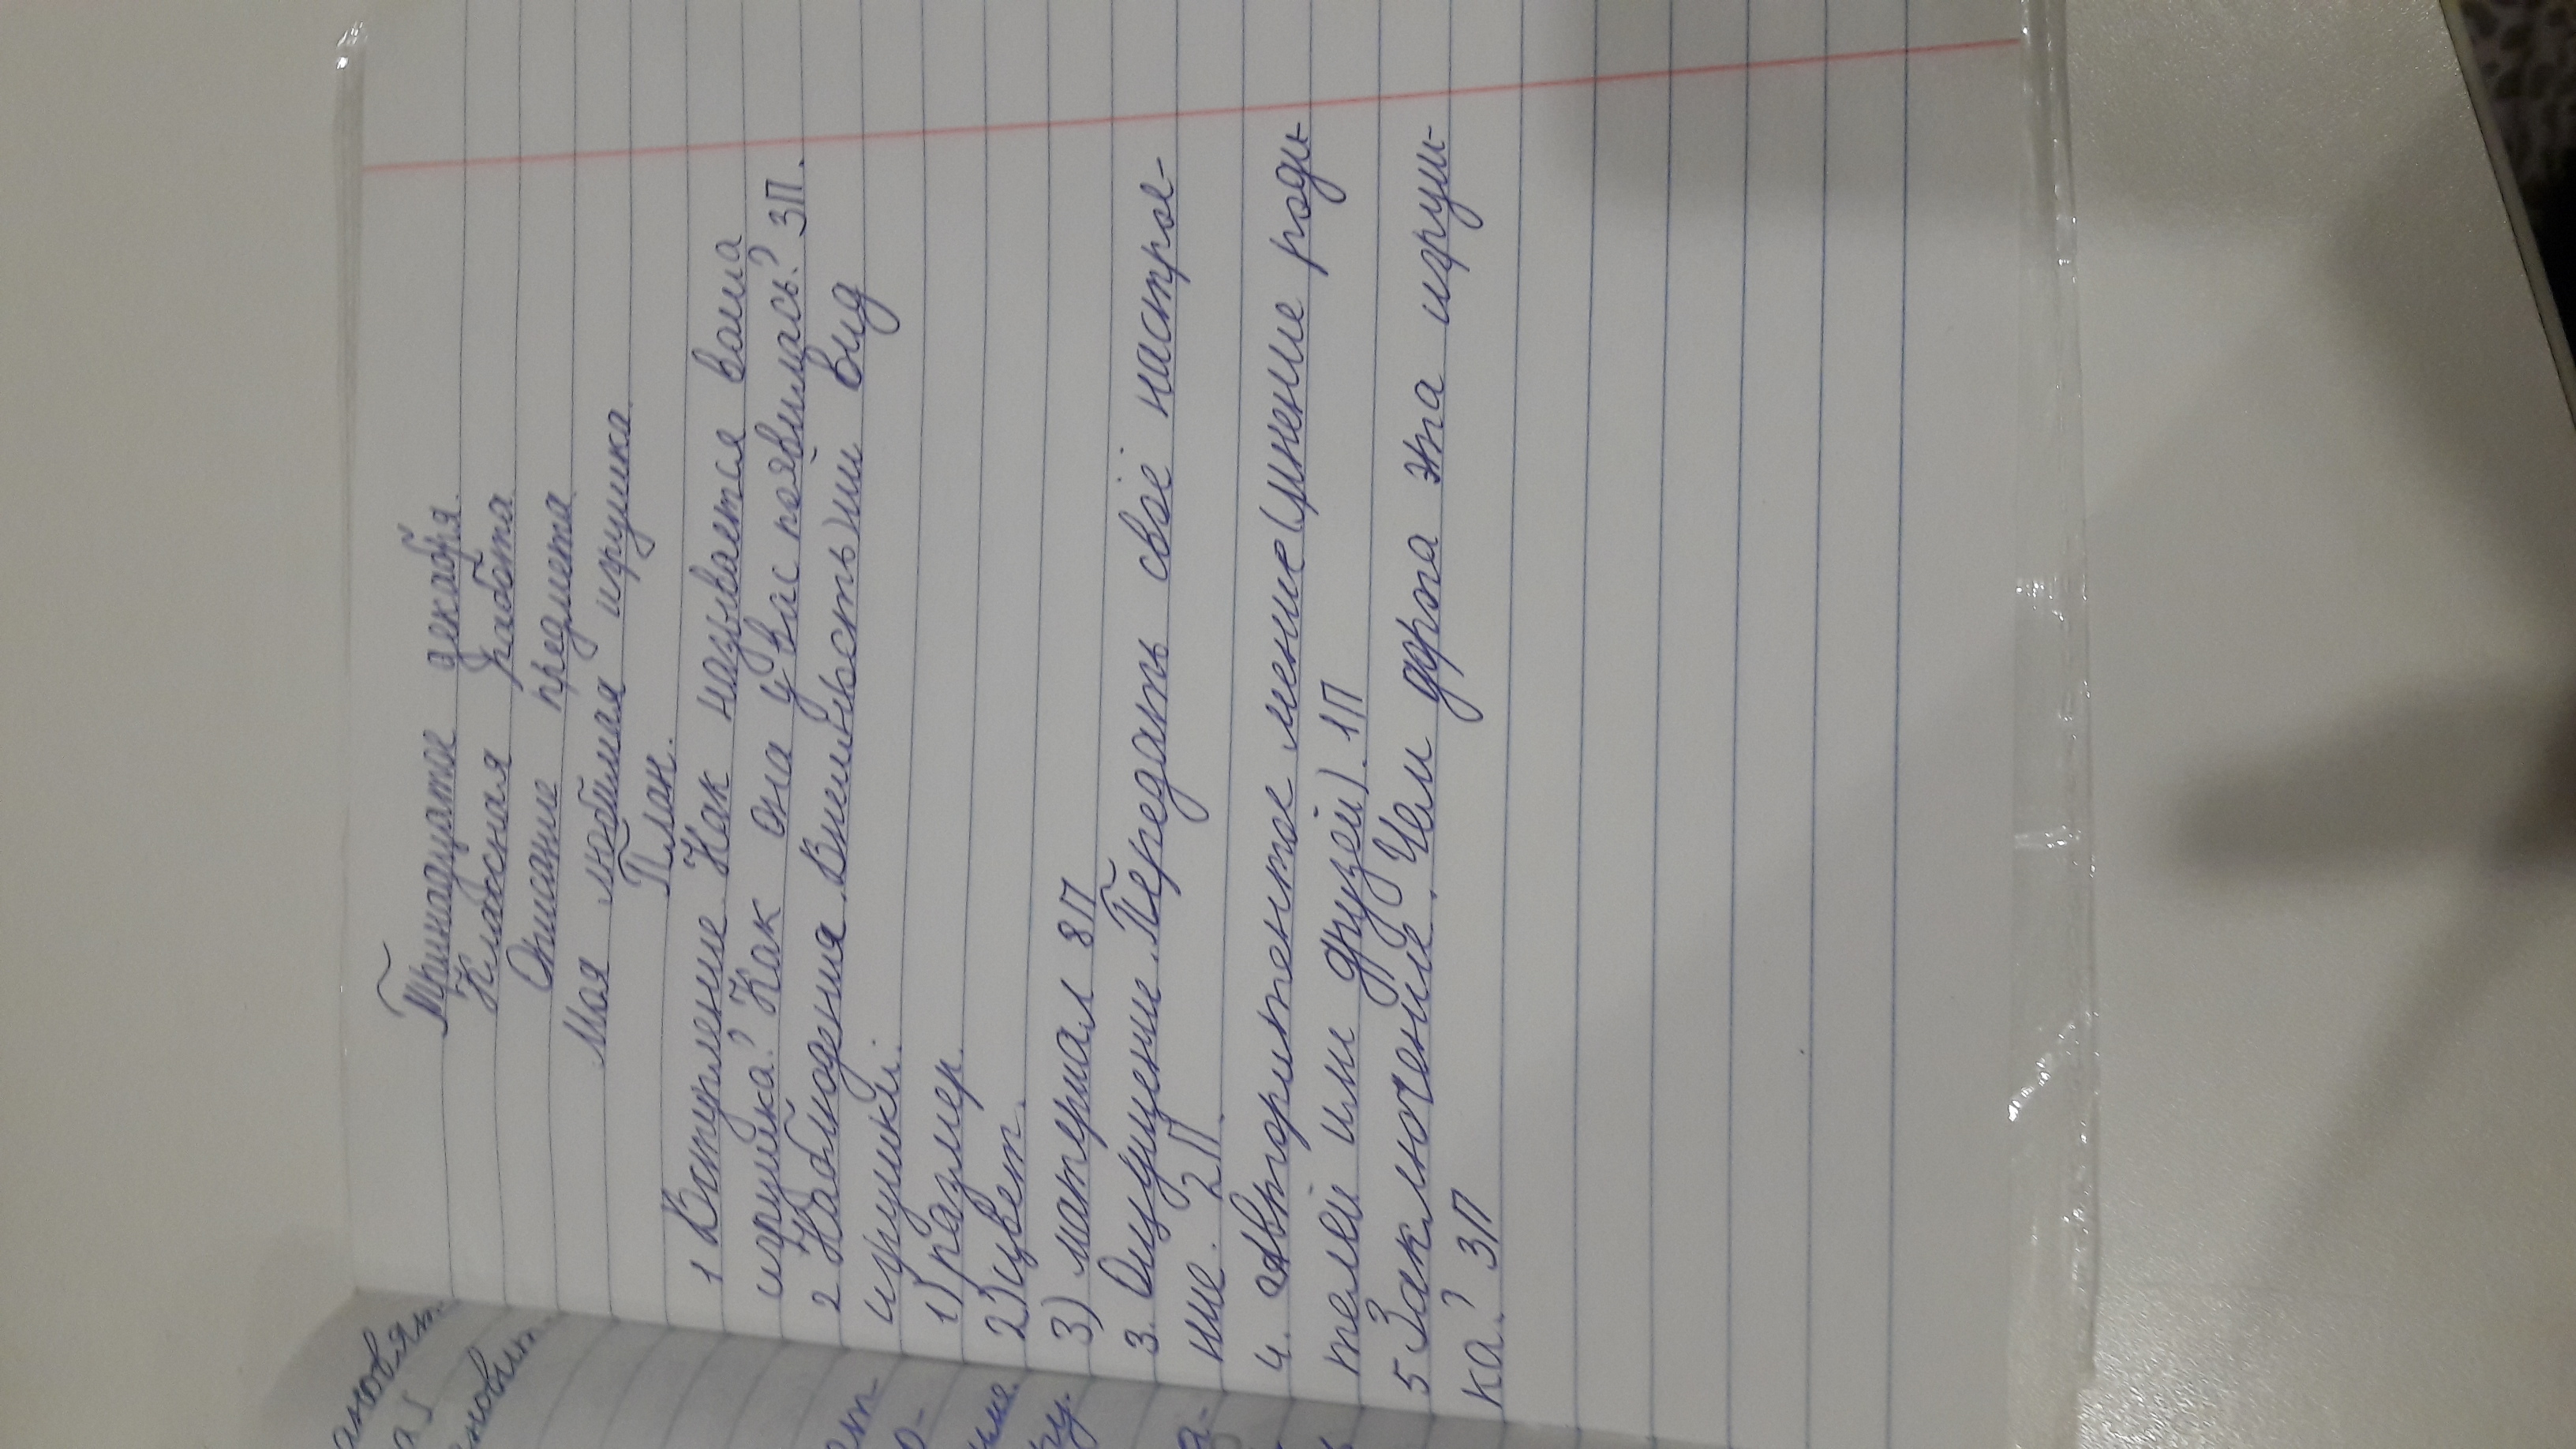 Тринадцатое декабря.
Классная работа
Описание предмета
Моя любимая игрушка.
План.
1 Вступление. Как называется ваша
игрушка? Как она у вас появилась? 3П.
2 Наблюдения. Внешность) ий вид
игрушки.
1) размер.
2) цвет.
3) материал 8П
3. Ощущение. Передать своё настрое-
ние. 2П.
4. Авторитентое мение (мнение роди-
телей или друзей). 1П
5 Заключение. Чем дорога эта игруш-
ка? 3П